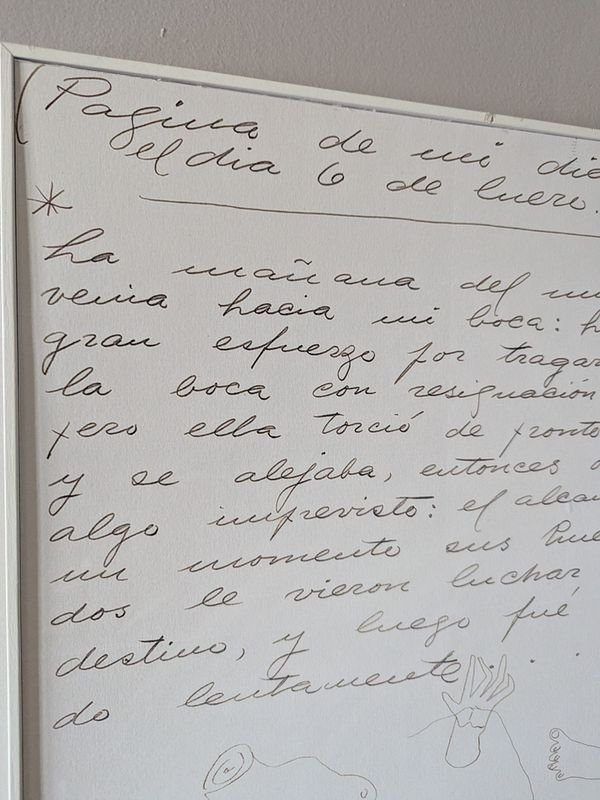 Pagina de mi die
el dia 6 de Enero.
La mañana del mu
venia hacia mi boca: h
gran esfuerzo por tragar
la boca con resignación
pero ella torció de pronto
y se alejaba, entonces
algo imprevisto: el alcan
un momento sus hue
dos le vieron luchar,
destino, y luego fué
do lentamente . . .